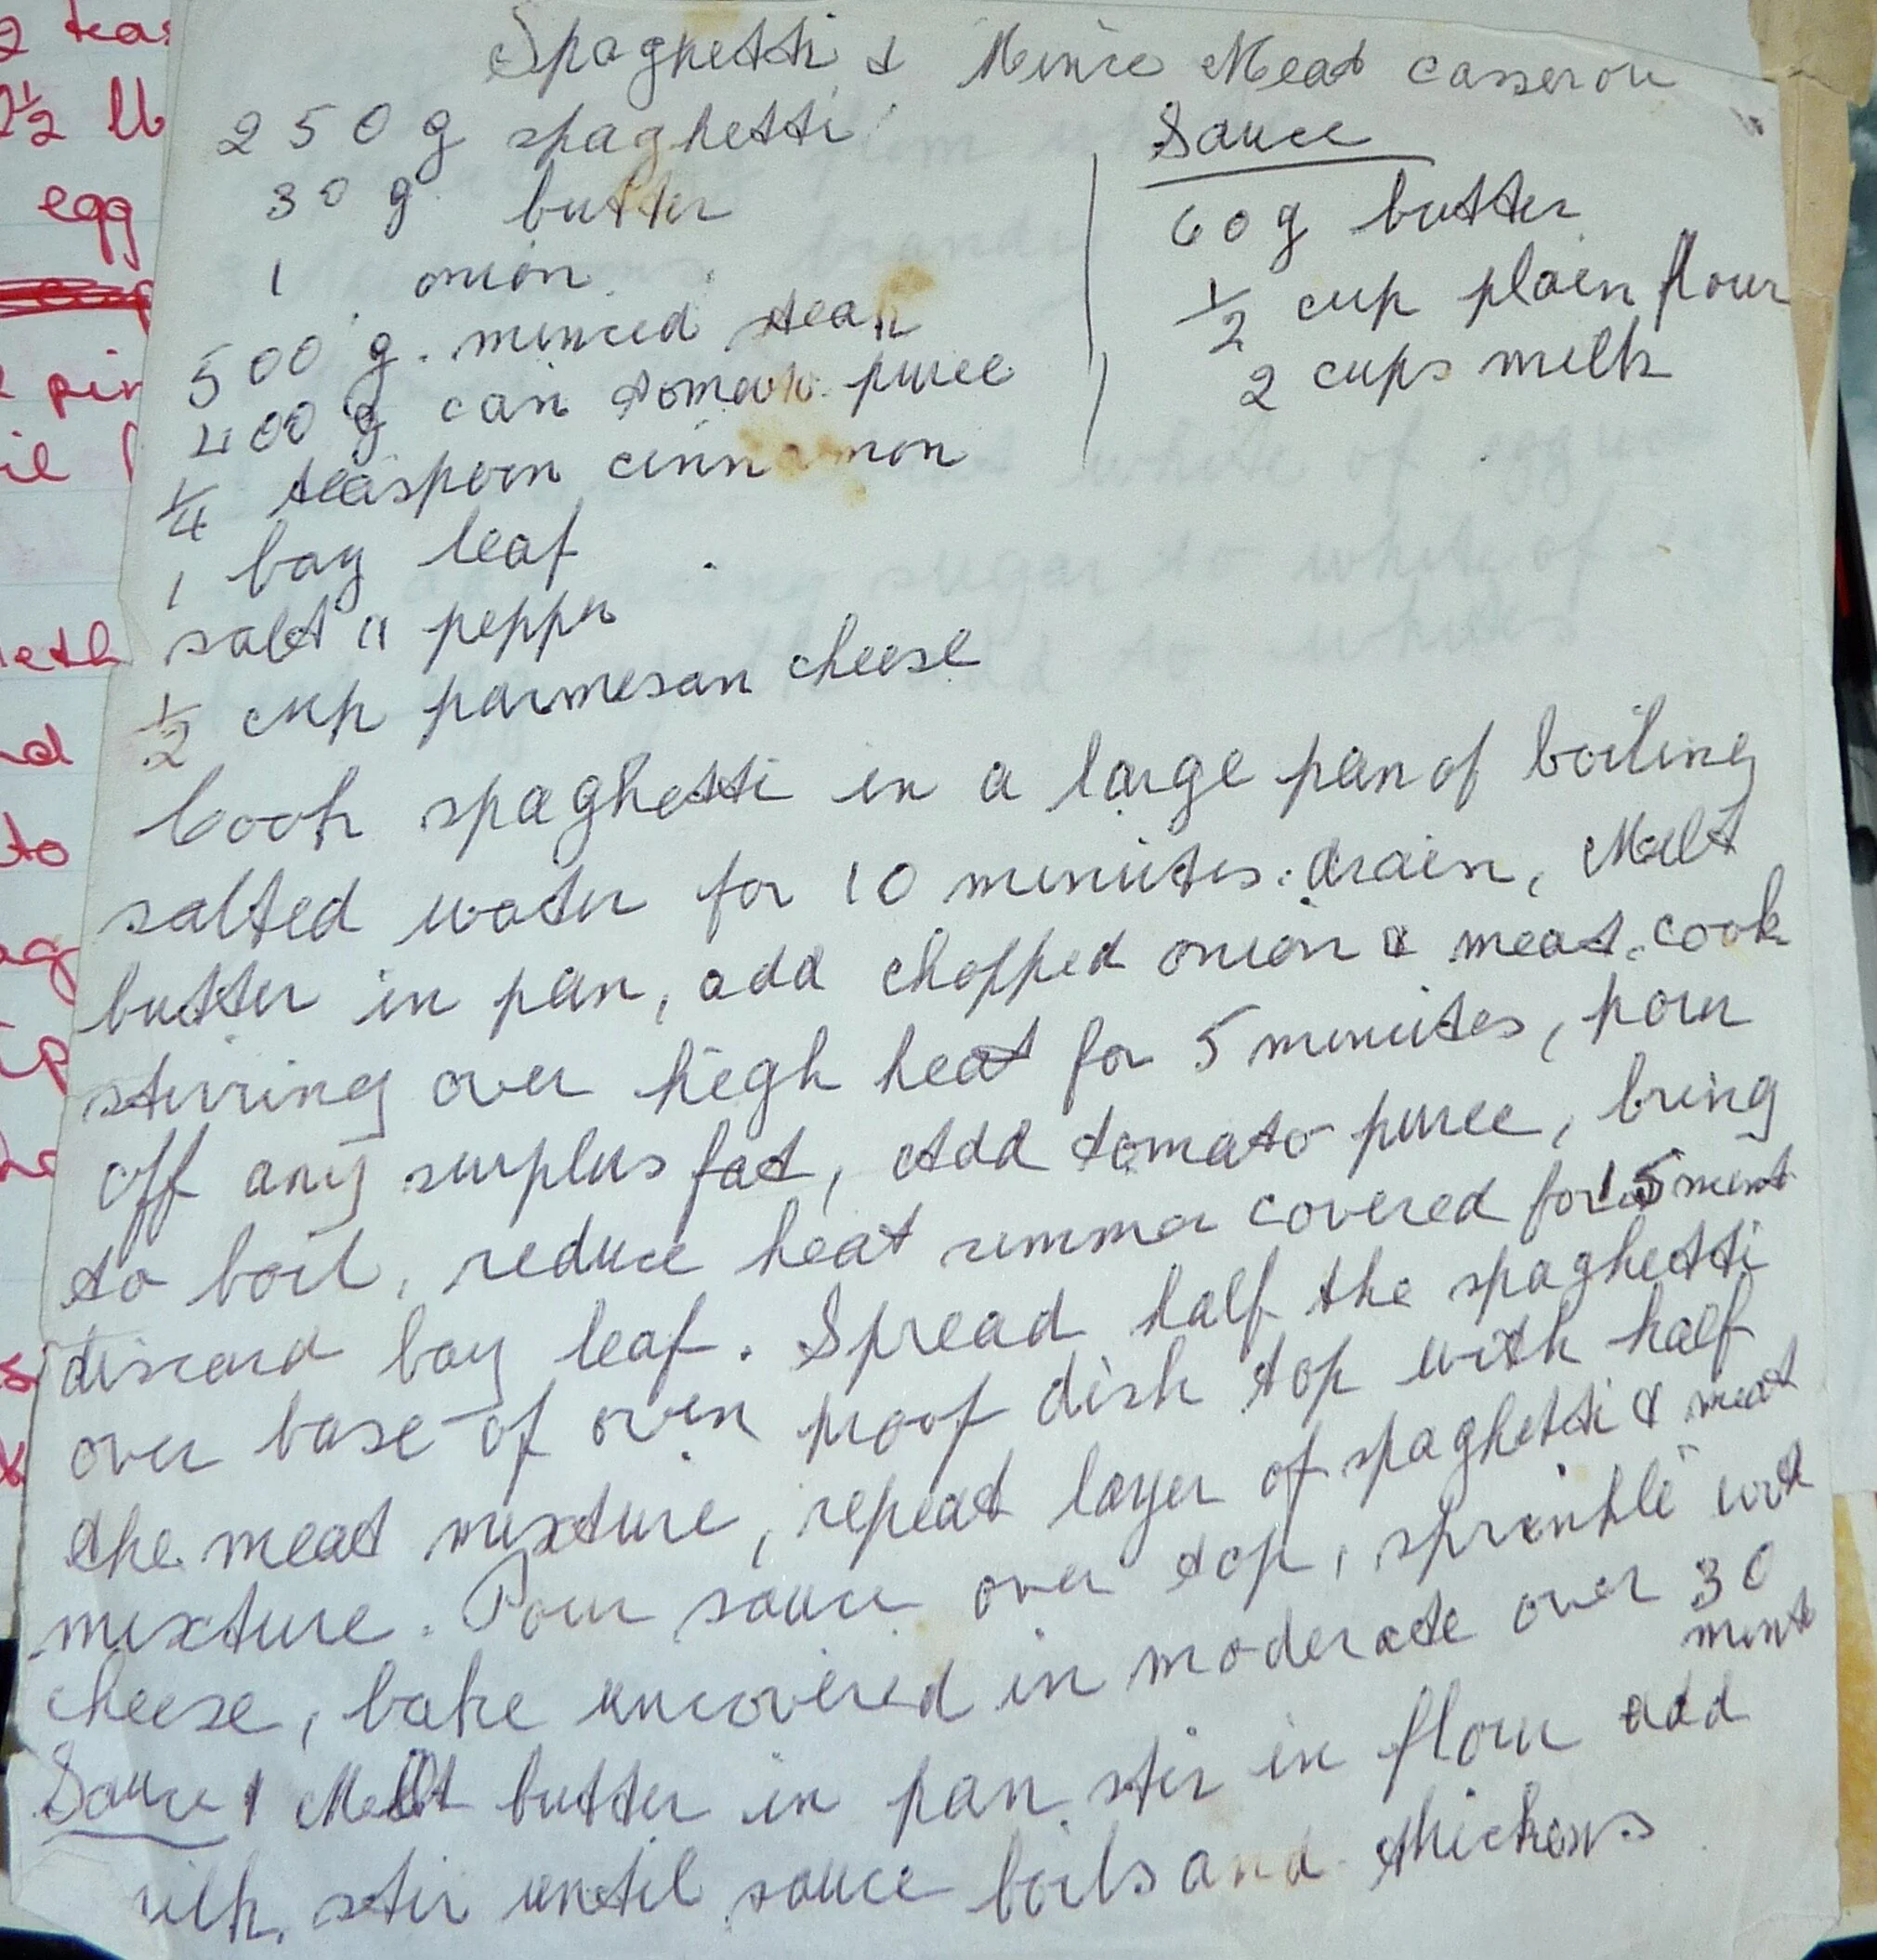 Spaghetti & Mince Meat casserole
250 g spaghetti
30 g butter
1 onion
500 g. minced steak
400 g can tomato puree
1/4 teaspoon cinnamon
1 bay leaf
salt " pepper
1/2 cup parmesan cheese
Sauce
60 g butter
1/2 cup plain flour
2 cups milk
Cook spaghetti in a large pan of boiling
salted water for 10 minutes. drain, Melt
butter in pan, add chopped onion & meat. cook
stirring over high heat for 5 minutes, pour
off any surplus fat, Add tomato puree, bring
to boil, reduce heat simmer covered for 15 mint
discard bay leaf. Spread half the spaghetti
over base of oven proof dish top with half
the meat mixture, repeat layer of spaghetti & meat
mixture. Pour sauce over top, sprinkle with
cheese, bake uncovered in moderate over 30
mint
Sauce Melt butter in pan stir in flour add
milk. stir until sauce boils and thickens.
2 teas
2 1/2 lb
egg
pin
il
eth
d
to
ag